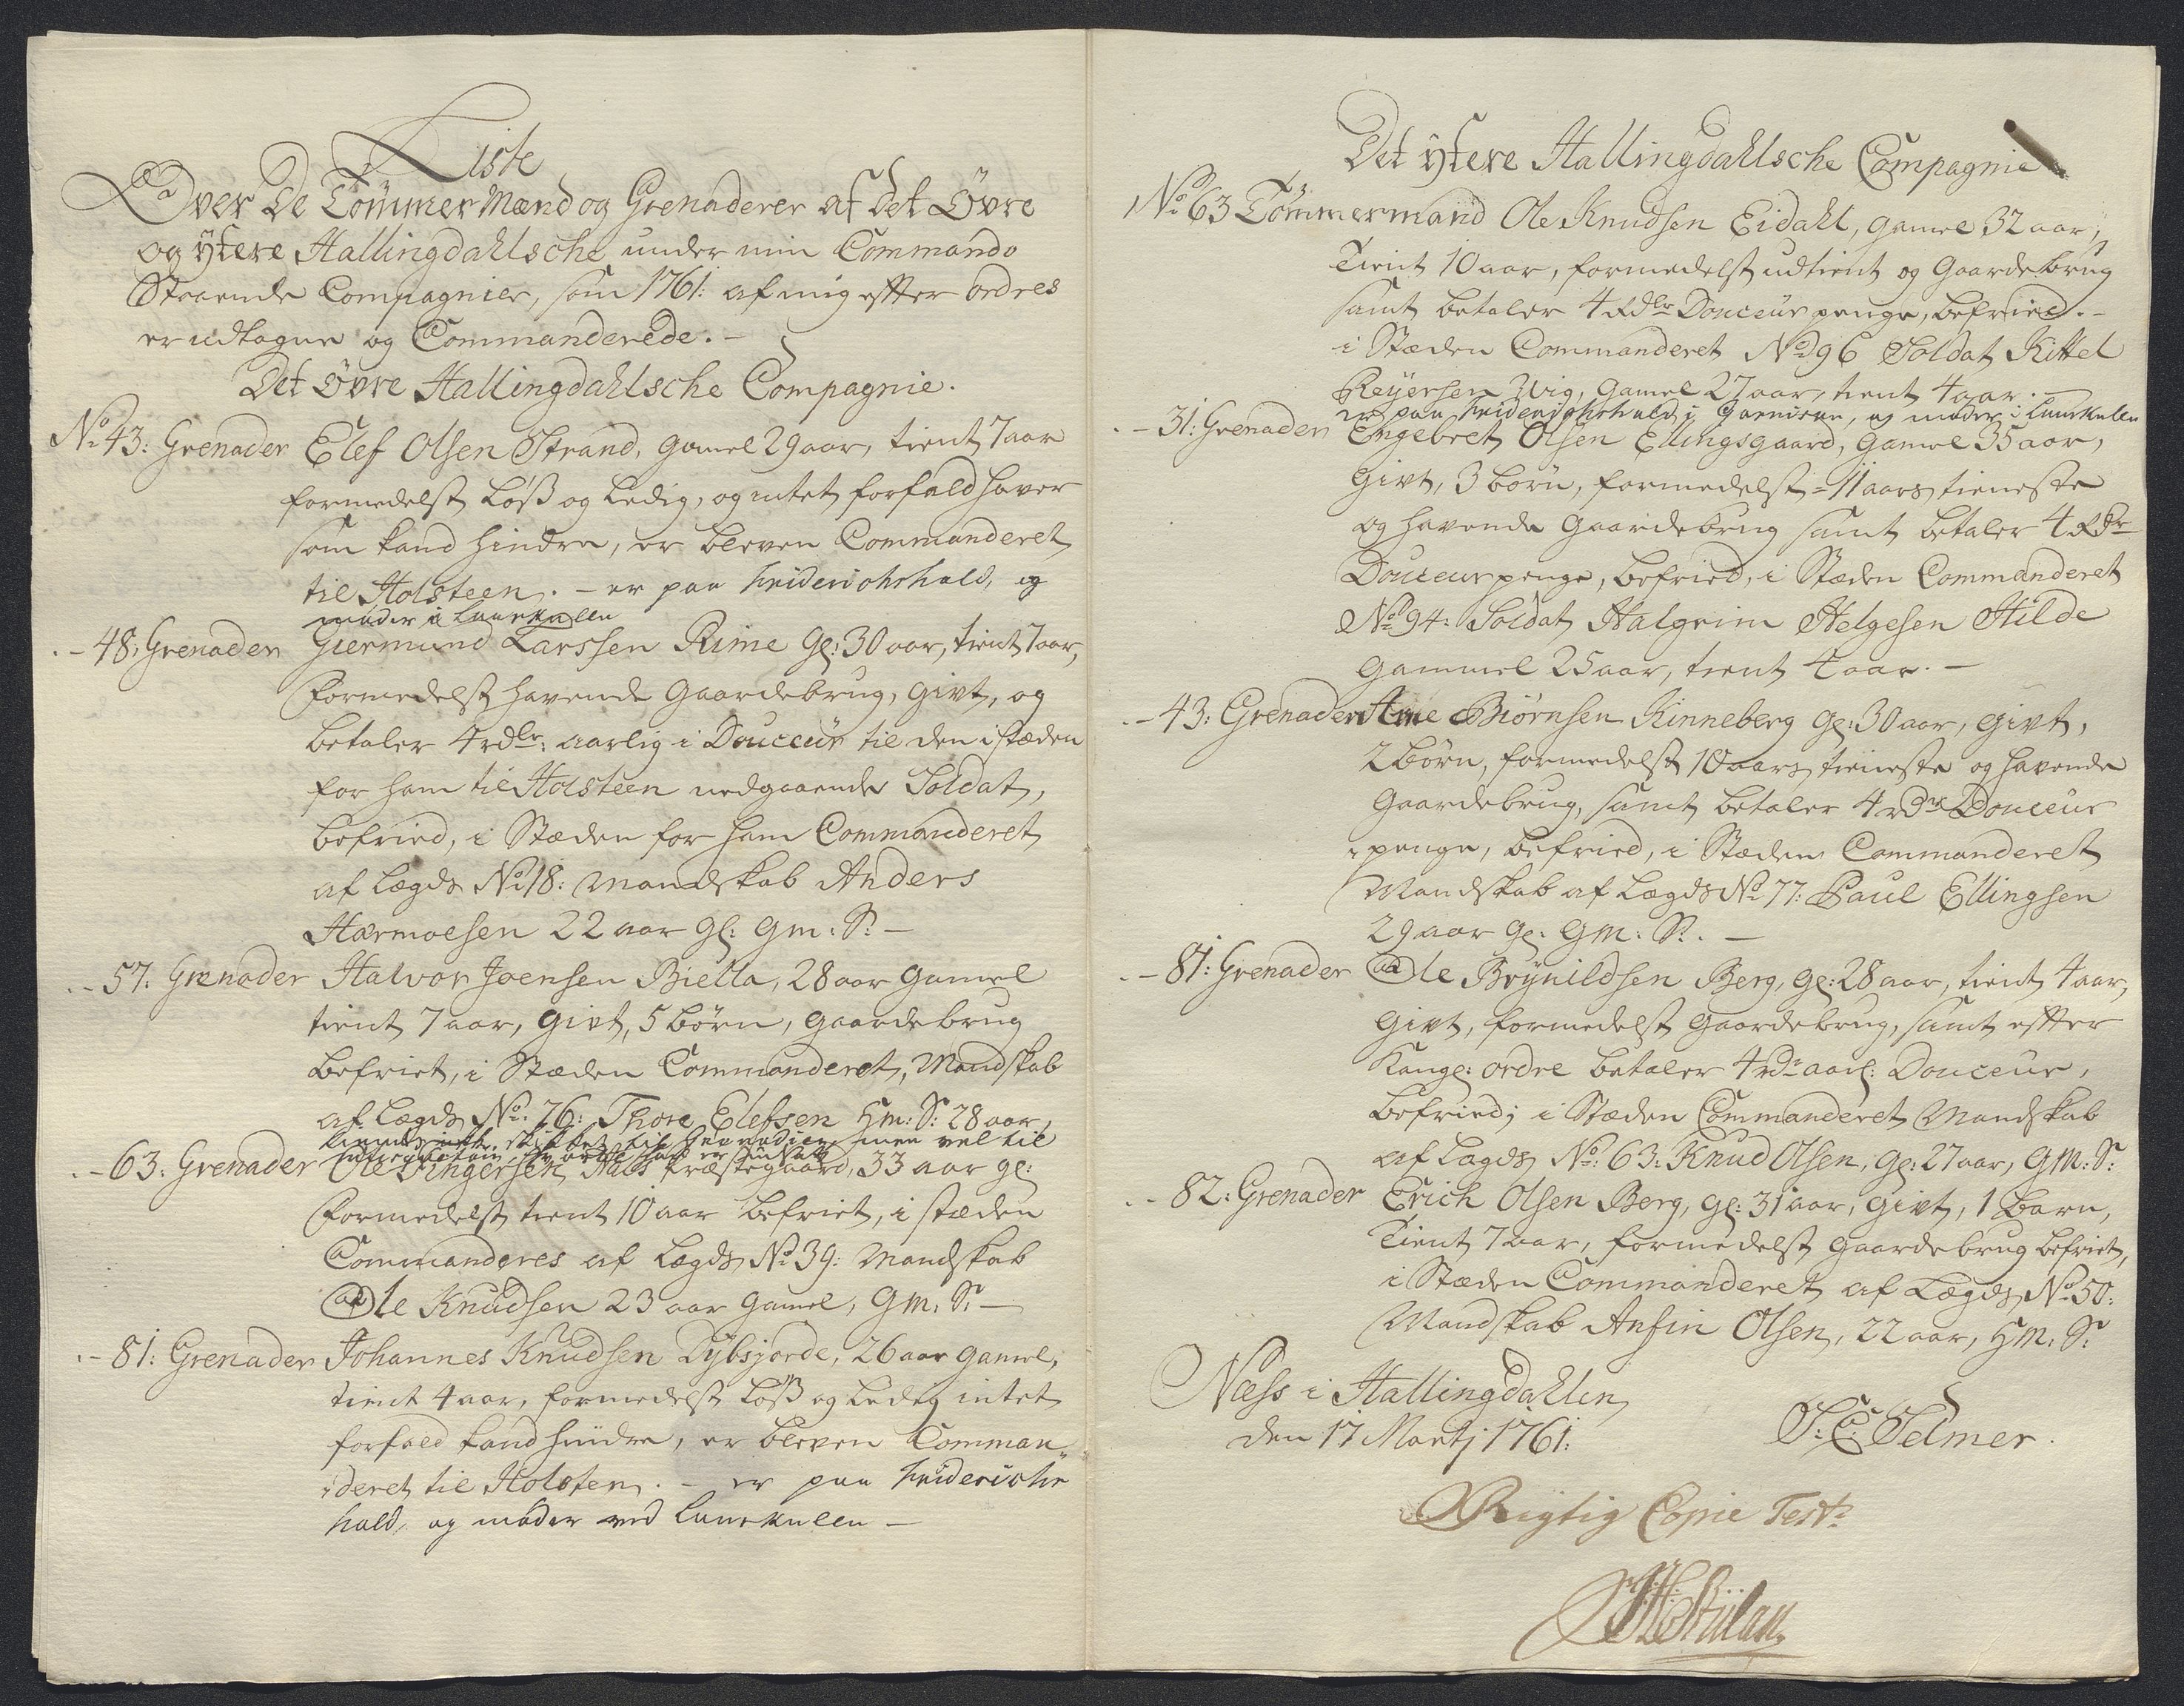 Liste
Over De Tömmer Mænd og Grenaderer af det Övre
og ÿtere Hallingdahlsche under min Commando
Staaende Compagnier, som 1761: af mig effter ordres
er udtagne og Commanderede. -
Det Övre Hallingdahlsche Compagnie.
No 43: Grenader Elef Olsen Strand, gamel 29 aar, tient 7 aar
formedelst Løß og Ledig, og intet forfald haver
som kand hindre, er bleven Commanderet
til Holsteen. - er paa Friderichshald, og
møder i
- 48: Grenader Giermund Larssen Rime gl: 30 aar, tient 7 aar,
formedelst havende Gaardebrug, givt, og
betaler 4 rdlr: aarlig i Douceur til den i stæden
for ham til Holsteen nedgaaende Soldat,
befried, i Stæden for ham Commanderet
af Lægds No 18: Mandskab Anders
Harmoesen 22 aar gl: gm: S: -
- 57: Grenader Halvor Joensen Biella, 28 aar gamel
tient 7 aar, givt, 5 børn, gaardebrug
befriet, i Stæden Commanderet, Mandskab
af Lægds No. 76: Thore Elefsen Hm: S: 28 aar,
men vel til
- 63: Grenader Ole Præstegaard, 33 aar gl:
formedelst tient 10 aar befriet, i stæden
Commanderes af Lægds No 39: Mandskab
Ole Knudsen 23 aar gamel, gm: S: -
- 81: Grenader Johannes Knudsen Dybsjorde, 26 aar gamel,
tient 4 aar, formedelst Løß og Ledig intet
forfald kand hindre, er bleven Comman-
deret til Holsten. - er paa Friderichs
hald, og møder ved -
Det ÿtere Hallingdahlsche Compagnie
No 63 Tömmermand Ole Knudsen Eidahl, gamel 32 aar,
Tient 10 aar, formedelst udtient og Gaardebrug
samt betaler 4 Rdlr Douceur penge, befried. -
i Stæden Commanderet No 96 Soldat Kittel
Reÿersen Wig, gamel 27 aar, tient 4 aar. -
er paa Friderichshald i Garnison, og møder i
- 31: Grenader Engebret Olsen Ellingsgaard, gamel 35 aar,
Givt, 3 børn, formedelst - 11 aars tieneste
og havende Gaardebrug samt betaler 4 Rdr
Douceur penge, befried, i Stæden Commanderet
No 94: Soldat Halgrim Helgesen Hilde
gammel 25 aar, tient 4 aar. -
- 43: Grenader Arne Biørnsen Kinneberg gl: 30 aar, givt,
2 børn, formedelst 10 aars tieneste og havende
Gaardebrug, samt betaler 4 rdr Douceur
penge, befried, i Stæden Commanderet
Mandskab af Lægds No 77: Paul Ellingsen
29 aar gl: gm: S:. -
- 81: Grenader Ole Brÿnildsen Berg, gl: 28 aar, tient 4 aar,
Givt, formedelst Gaardebrug, samt effter
Kongl: ordre betaler 4 rdr aarl: Douceur,
befried; i Stæden Commanderet Mandskab
af Lægds No: 63: Knud Olsen, gl: 27 aar, gm: S:
- 82: Grenader Erich Olsen Berg, gl: 31 aar, givt, 1 barn,
Tient 7 aar, formedelst Gaardebrug befriet,
i Stæden Commanderet af Lægds No 50:
Mandskab Anfin Olsen, 22 aar, Hm: S:
Næss i Hallingdahlen
den 17 Martj 1761:
S: C: Selmer.
Rigtig Copie Test: